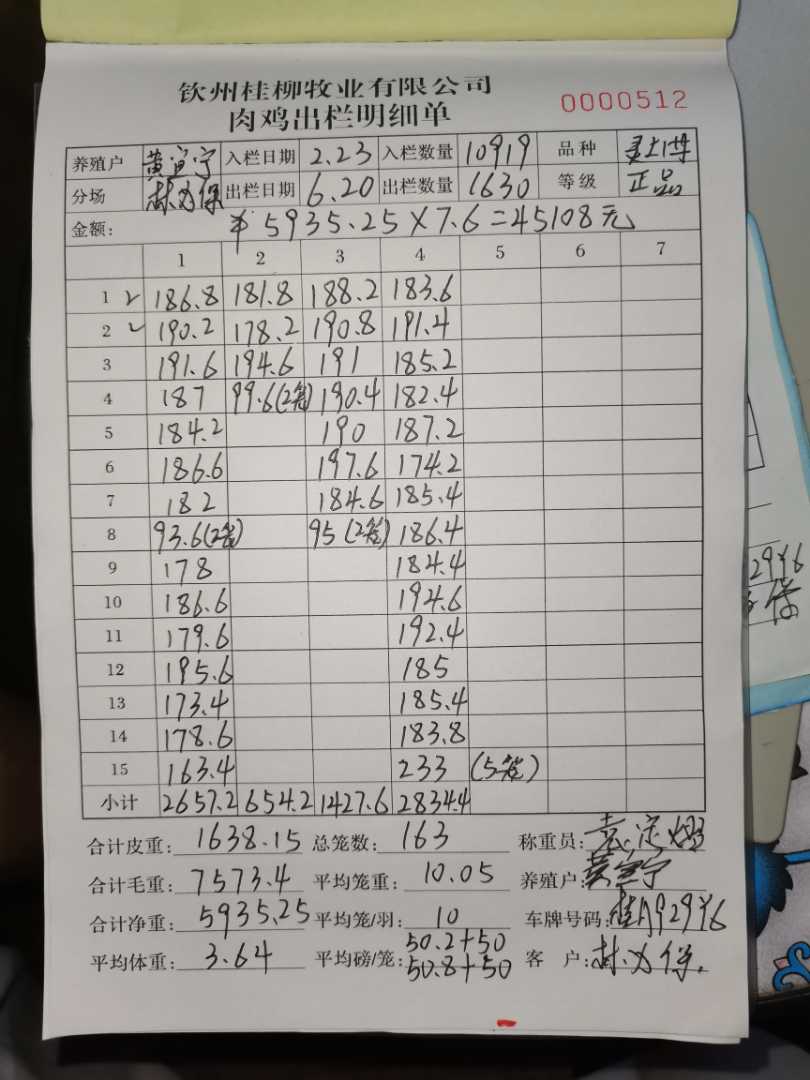 钦州桂柳牧业有限公司
肉鸡出栏明细单
0000512
养殖户 黄宣宁 入栏日期 2.23 入栏数量 10919 品种
分场 林为保 出栏日期 6.20 出栏数量 1630 等级 正品
金额: ¥5935.25×7.6=45108元
1 2 3 4 5 6 7
1 186.8 181.8 188.2 183.6
2 190.2 178.2 190.8 191.4
3 191.6 194.6 191 185.2
4 187 99.6(2笼) 190.4 182.4
5 184.2 190 187.2
6 186.6 197.6 174.2
7 182 184.6 185.4
8 93.6(2笼) 95(2笼) 186.4
9 178 184.4
10 186.6 194.6
11 179.6 192.4
12 195.6 185
13 173.4 185.4
14 178.6 183.8
15 163.4 233 (5笼)
小计 2657.2 654.2 1427.6 2834.4
合计皮重: 1638.15 总笼数: 163 称重员:
合计毛重: 7573.4 平均笼重: 10.05 养殖户: 黄宣宁
合计净重: 5935.25 平均笼/羽: 10 车牌号码:
平均体重: 3.64 平均磅/笼: 50.2+50 客 户: 林为保
50.8+50